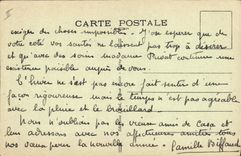 CARTE POSTALE
exiger des choses impossible. J'ose esperer que de
votre coté vos santés ne laissent pas trop à desirer
et qu'avec des soins modame Pivont continue une
existence paisible auprès de vous.
L'hiver ne s'est pas encore fait sentir d'un
façon rigoureuse mais le temps n'est pas agreable
avec la pluie et le brouillard.
Nous n'oublions pas les vieux amis de Casa et
leur adressons avec nos affectueuses amitiés tous
nos vœux pour la nouvelle année. Famille